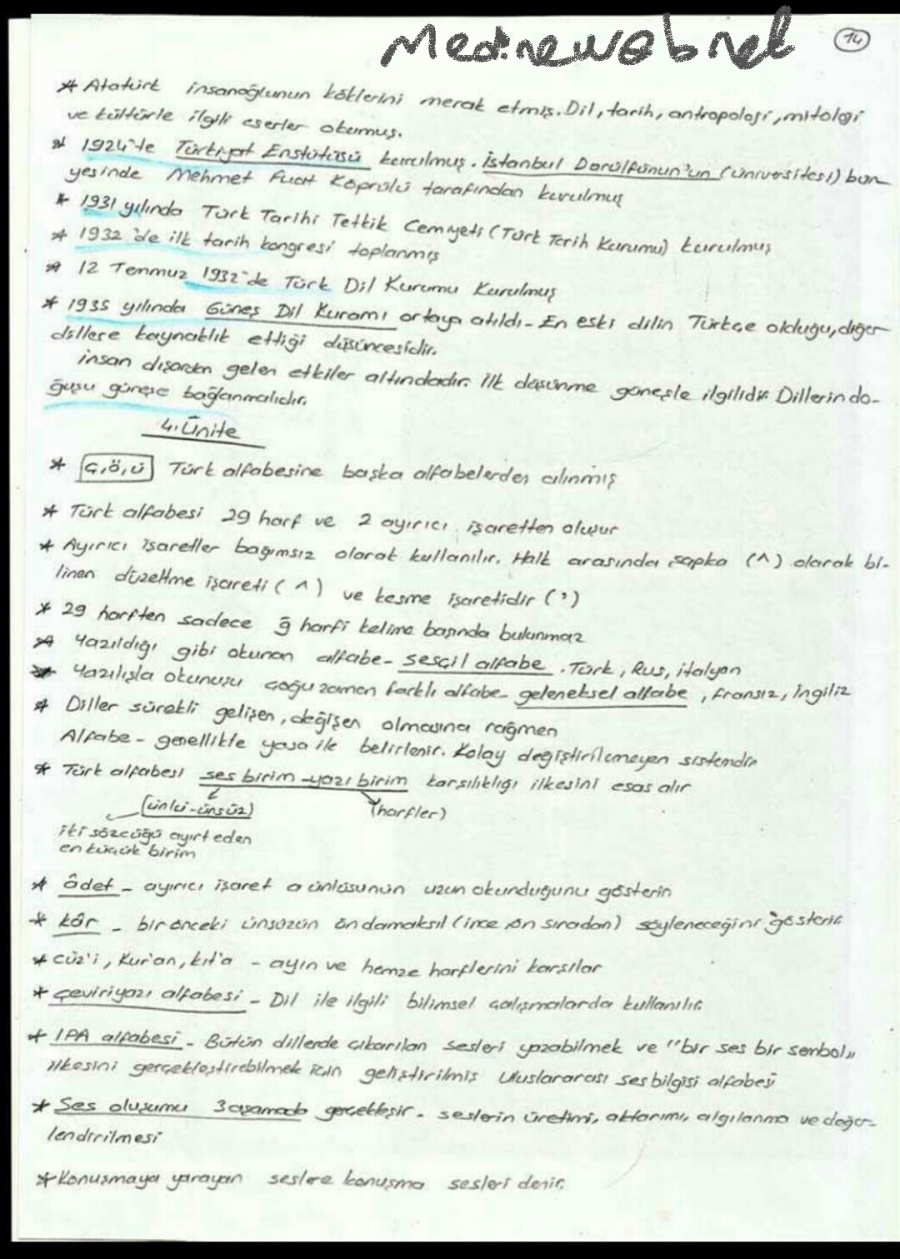 Medineweb net
14
* Atatürk insanoğlunun köklerini merak etmiş. Dil, tarih, antropoloji, mitoloji
ve kültürle ilgili eserler okumuş.
* 1924'te Türkiyat Enstütüsü kurulmuş. İstanbul Darülfünun'un (üniversitesi) bün
yesinde Mehmet Fuat Köprülü tarafından kurulmuş
* 1931 yılında Türk Tarihi Tetkik Cemiyeti (Türk Tarih Kurumu) kurulmuş
* 1932'de ilk tarih kongresi toplanmış
* 12 Temmuz 1932'de Türk Dil Kurumu Kurulmuş
* 1935 yılında Güneş Dil Kuramı ortaya atıldı - En eski dilin Türkçe olduğu, diğer
dillere kaynaklık ettiği düşüncesidir.
insan dışardan gelen etkiler altındadır. İlk düşünme güneşle ilgilidir. Dillerin do-
ğuşu güneşe bağlanmalıdır.
4. Ünite
* Ç, ö, ü Türk alfabesine başka alfabelerden alınmış
* Türk alfabesi 29 harf ve 2 ayırıcı işaretten oluşur
* Ayırıcı işaretler bağımsız olarak kullanılır. Halk arasında şapka (^) olarak bi-
linen düzeltme işareti (^) ve kesme işaretidir (')
* 29 harften sadece ğ harfi kelime başında bulunmaz
* Yazıldığı gibi okunan alfabe - sesçil alfabe. Türk, Rus, italyan
* Yazılışla okunuşu çoğu zaman farklı alfabe - geleneksel alfabe, fransız, İngiliz
* Diller sürekli gelişen, değişen olmasına rağmen
Alfabe - genellikle yasa ile belirlenir. Kolay değiştirilemeyen sistemdir
* Türk alfabesi ses birim - yazı birim karşılıklığı ilkesini esas alır
(ünlü-ünsüz) (harfler)
iki sözcüğü ayırt eden
en küçük birim
* âdet - ayırıcı işaret a ünlüsünün uzun okunduğunu gösterir
* kâr - bir önceki ünsüzün ön damaksıl (ince, ön sıradan) söyleneceğini gösterir
* cüz'i, Kur'an, kıt'a - ayın ve hemze harflerini karşılar
* çeviriyazı alfabesi - Dil ile ilgili bilimsel çalışmalarda kullanılır.
* IPA alfabesi - Bütün dillerde çıkarılan sesleri yazabilmek ve "bir ses bir sembol"
ilkesini gerçekleştirebilmek için geliştirilmiş Uluslararası ses bilgisi alfabesi
* Ses oluşumu 3 aşamada gerçekleşir - seslerin üretimi, aktarımı, algılanma ve değer-
lendirilmesi
* Konuşmaya yarayan seslere konuşma sesleri denir.